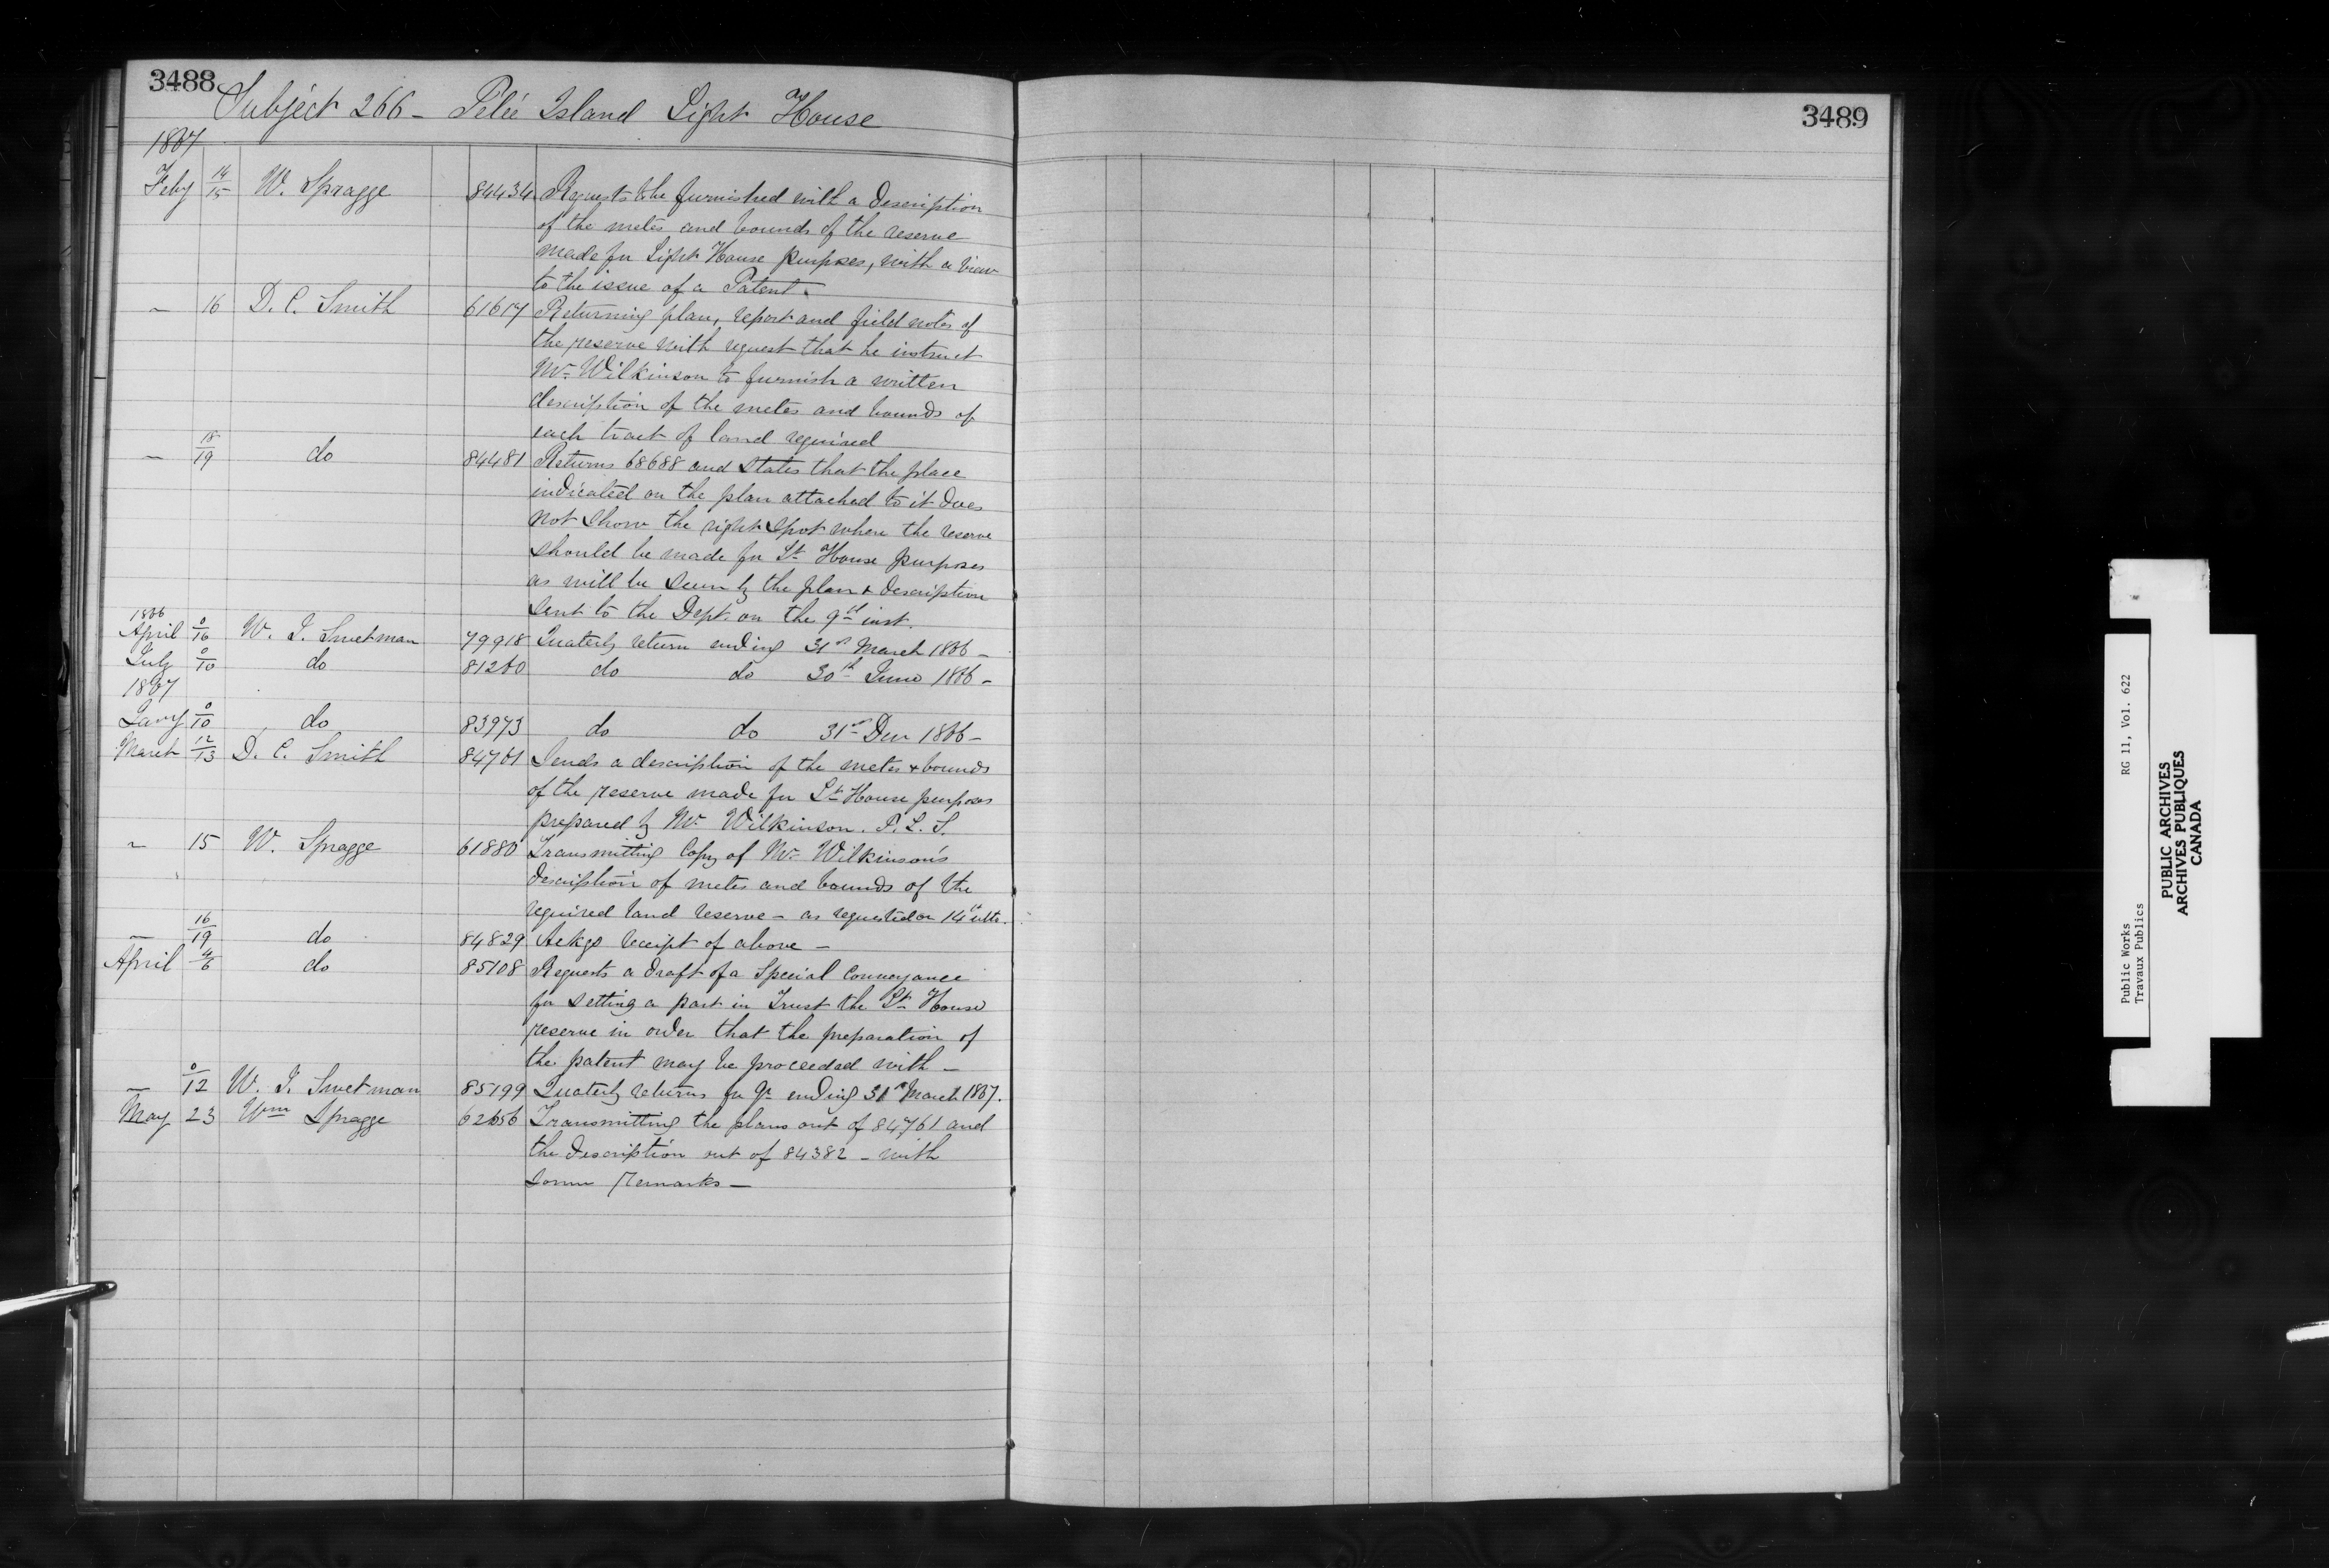 3488
Subject 266 - Pelée Island Light House
1867
Feby 14/15 W. Spragge 84434 Requests to be furnished with a description
of the metes and bounds of the reserve
made for Light House purposes, with a view
to the issue of a Patent.
— 16 D. C. Smith 61617 Returning plan, report and field notes of
the reserve with request that he instruct
Mr. Wilkinson to furnish a written
description of the metes and bounds of
each tract of land required
— 18/19 do 84481 Returns 68688 and states that the place
indicated on the plan attached to it does
not show the right spot where the reserve
should be made for Lt House purposes
as will be seen by the plan & description
sent to the Dept. on the 9th inst.
1866
April 0/16 W. I. Swetman 79918 Quaterly return ending 31st March 1866 -
July 0/10 do 81260 do do 30th June 1866 -
1867
Jany 0/10 do 83973 do do 31st Decr 1866 -
March 12/13 D. C. Smith 84761 Sends a description of the metes & bounds
of the reserve made for Lt House purposes
prepared by Mr Wilkinson. P. L. S.
— 15 W. Spragge 61880 Transmitting Copy of Mr Wilkinson's
description of metes and bounds of the
required land reserve - as requested on 14th ulto.
— 16/19 do 84829 Ackgs receipt of above -
April 4/6 do 85108 Requests a draft of a Special Conveyance
for setting a part in Trust the Lt House
reserve in order that the preparation of
the patent may be proceeded with -
— 0/12 W. I. Swetman 85199 Quaterly returns for Qr ending 31st March 1867.
May 23 Wm Spragge 62656 Transmitting the plans out of 84761 and
the description out of 84382 - with
some remarks -
3489
Public Works
Travaux Publics
RG 11, Vol. 622
PUBLIC ARCHIVES
ARCHIVES PUBLIQUES
CANADA